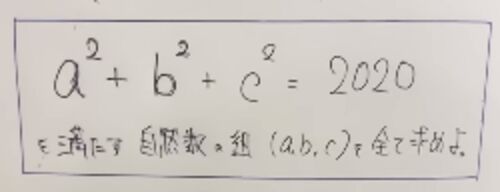 a² + b² + c² = 2020
を満たす 自然数の組 (a,b,c)を全て求めよ。